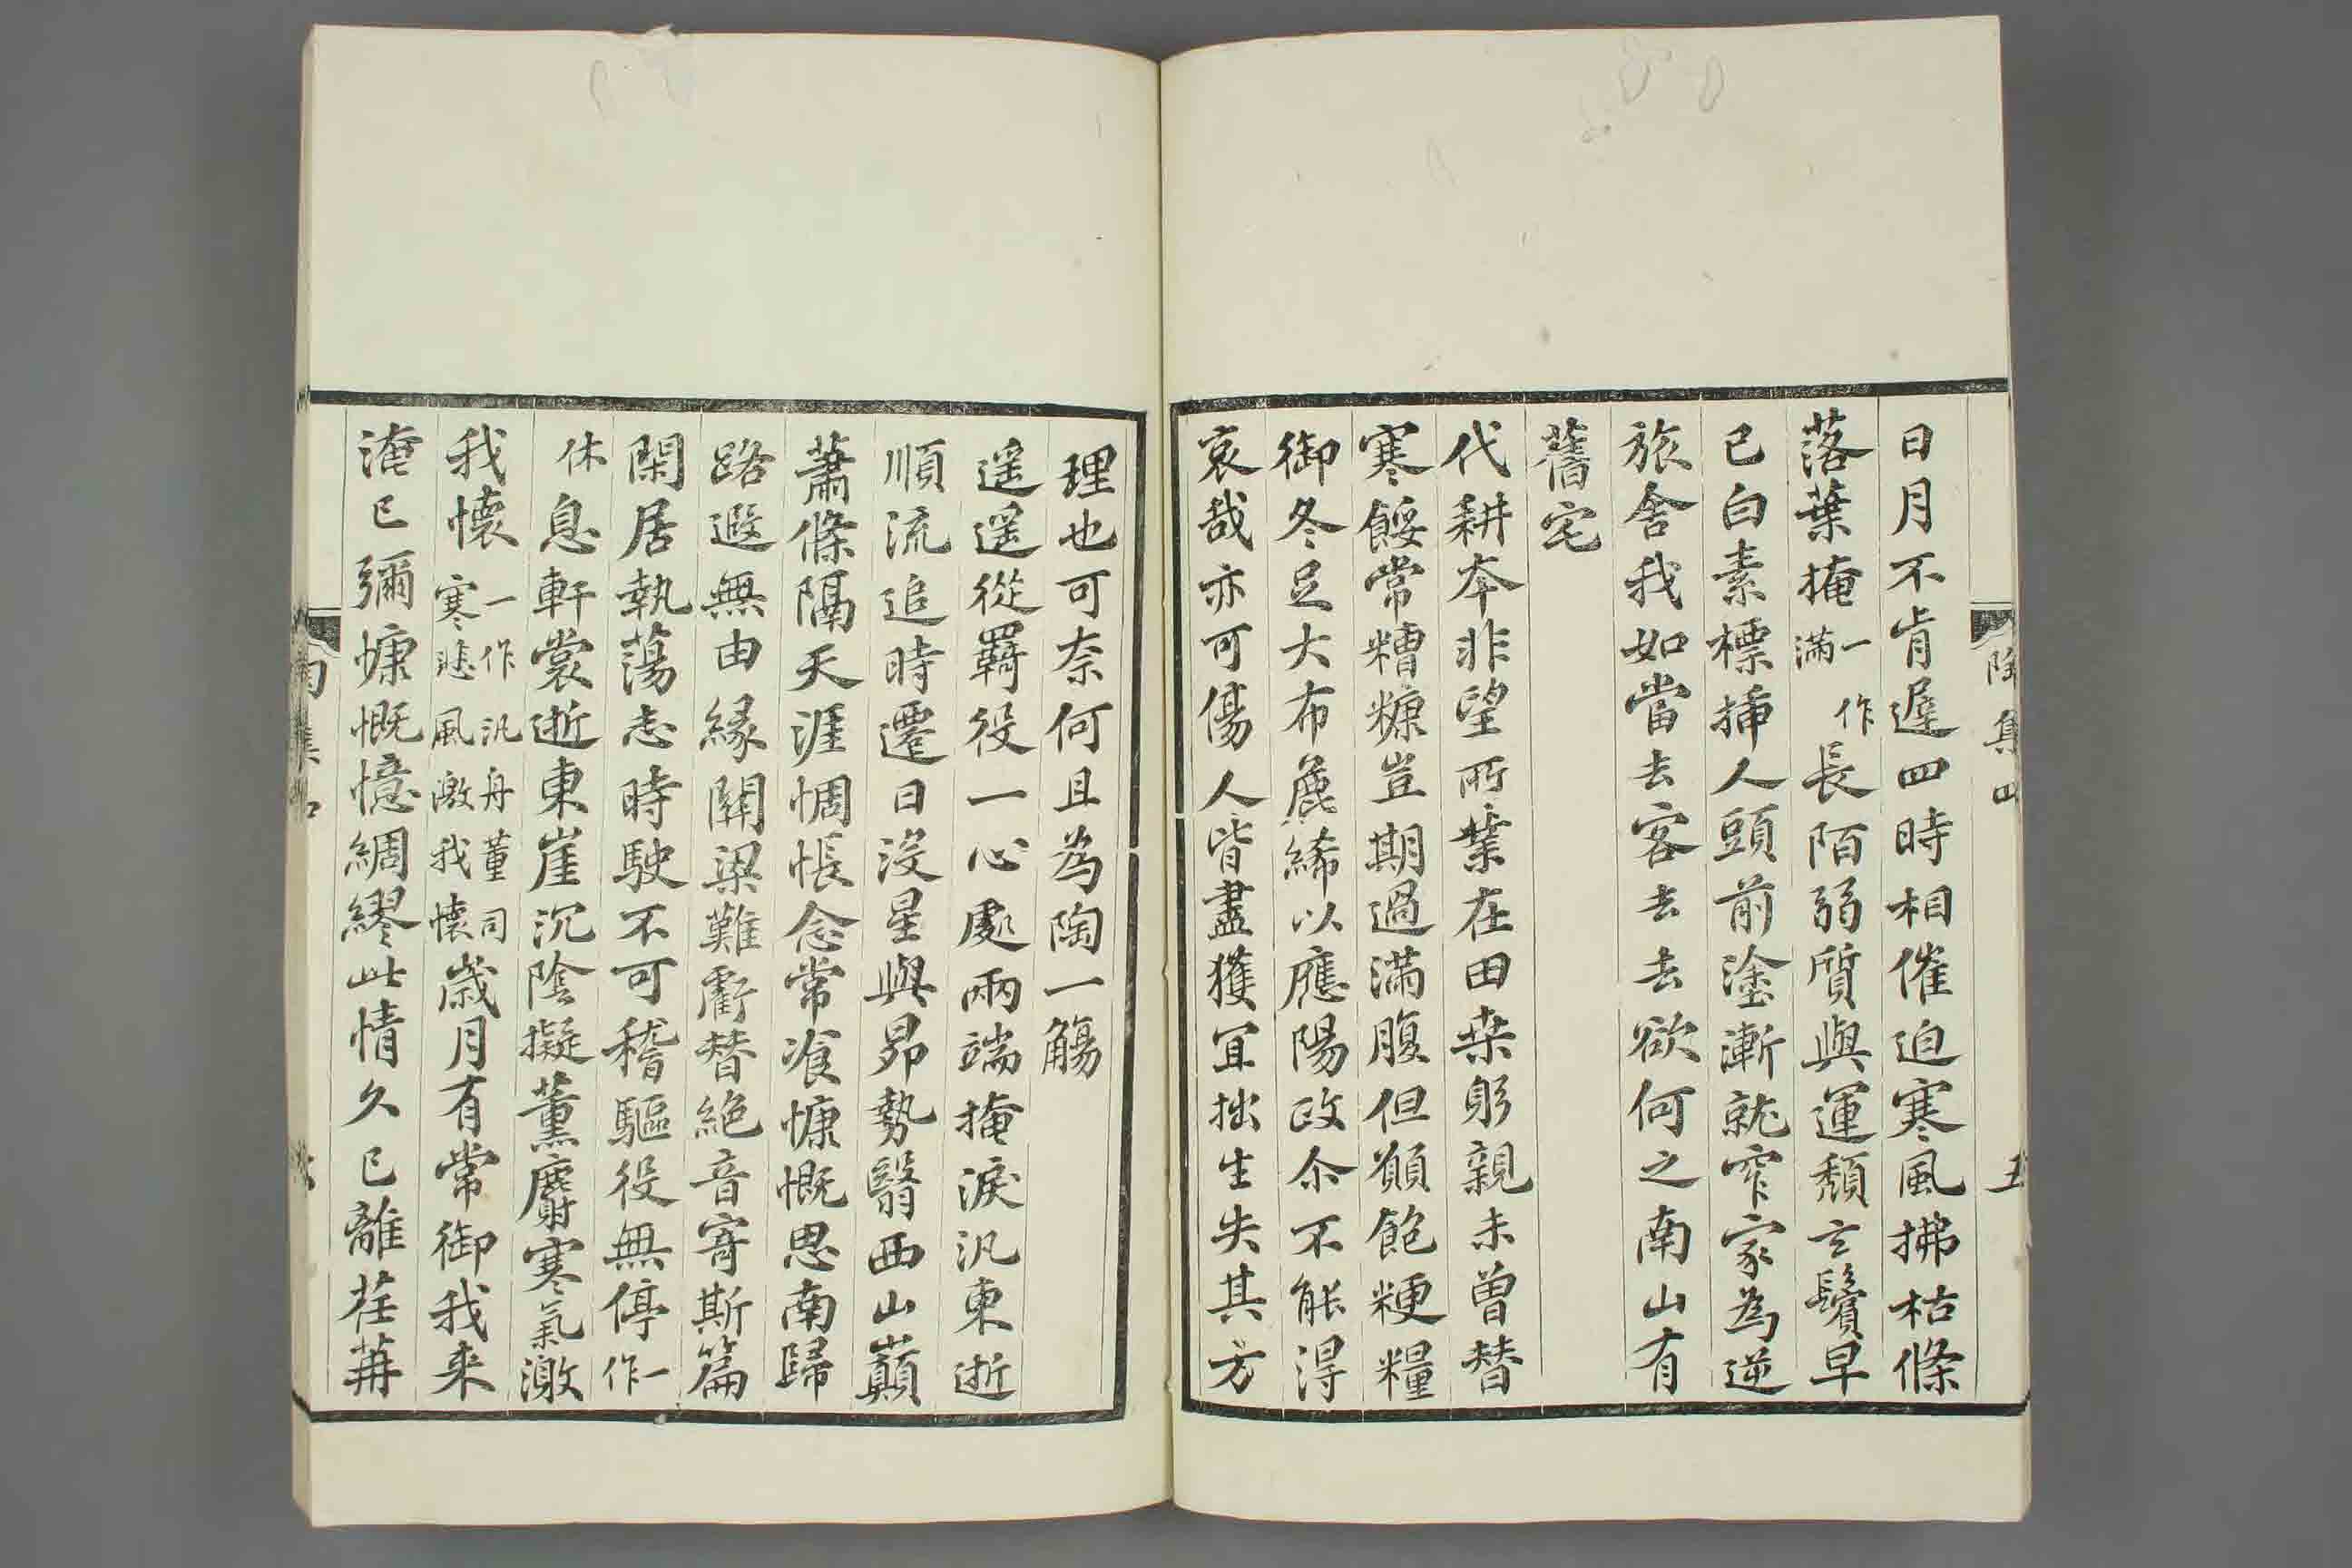 陶集四
五
日月不肯遲四時相催迫寒風拂枯條
落葉掩一作滿長陌弱質與運頹玄鬢早
已白素標插人頭前塗漸就窄家為逆
旅舍我如當去客去去欲何之南山有
舊宅
代耕本非望所業在田桑躬親未曾替
寒餒常糟糠豈期過滿腹但願飽粳糧
御冬足大布麁絺以應陽政尒不能得
哀哉亦可傷人皆盡獲宜拙生失其方
理也可奈何且為陶一觴
遥遥從羇役一心處兩端掩淚汎東逝
順流追時遷日沒星與昴勢翳西山巔
蕭條隔天涯惆悵念常飡慷慨思南歸
路遐無由緣關梁難虧替絕音寄斯篇
閑居執蕩志時駛不可稽驅役無停一作
休息軒裳逝東崖沉陰擬薰麝寒氣激
我懷一作汎舟董司寒悲風激我懷歲月有常御我来
淹已彌慷慨憶綢繆此情久已離荏苒